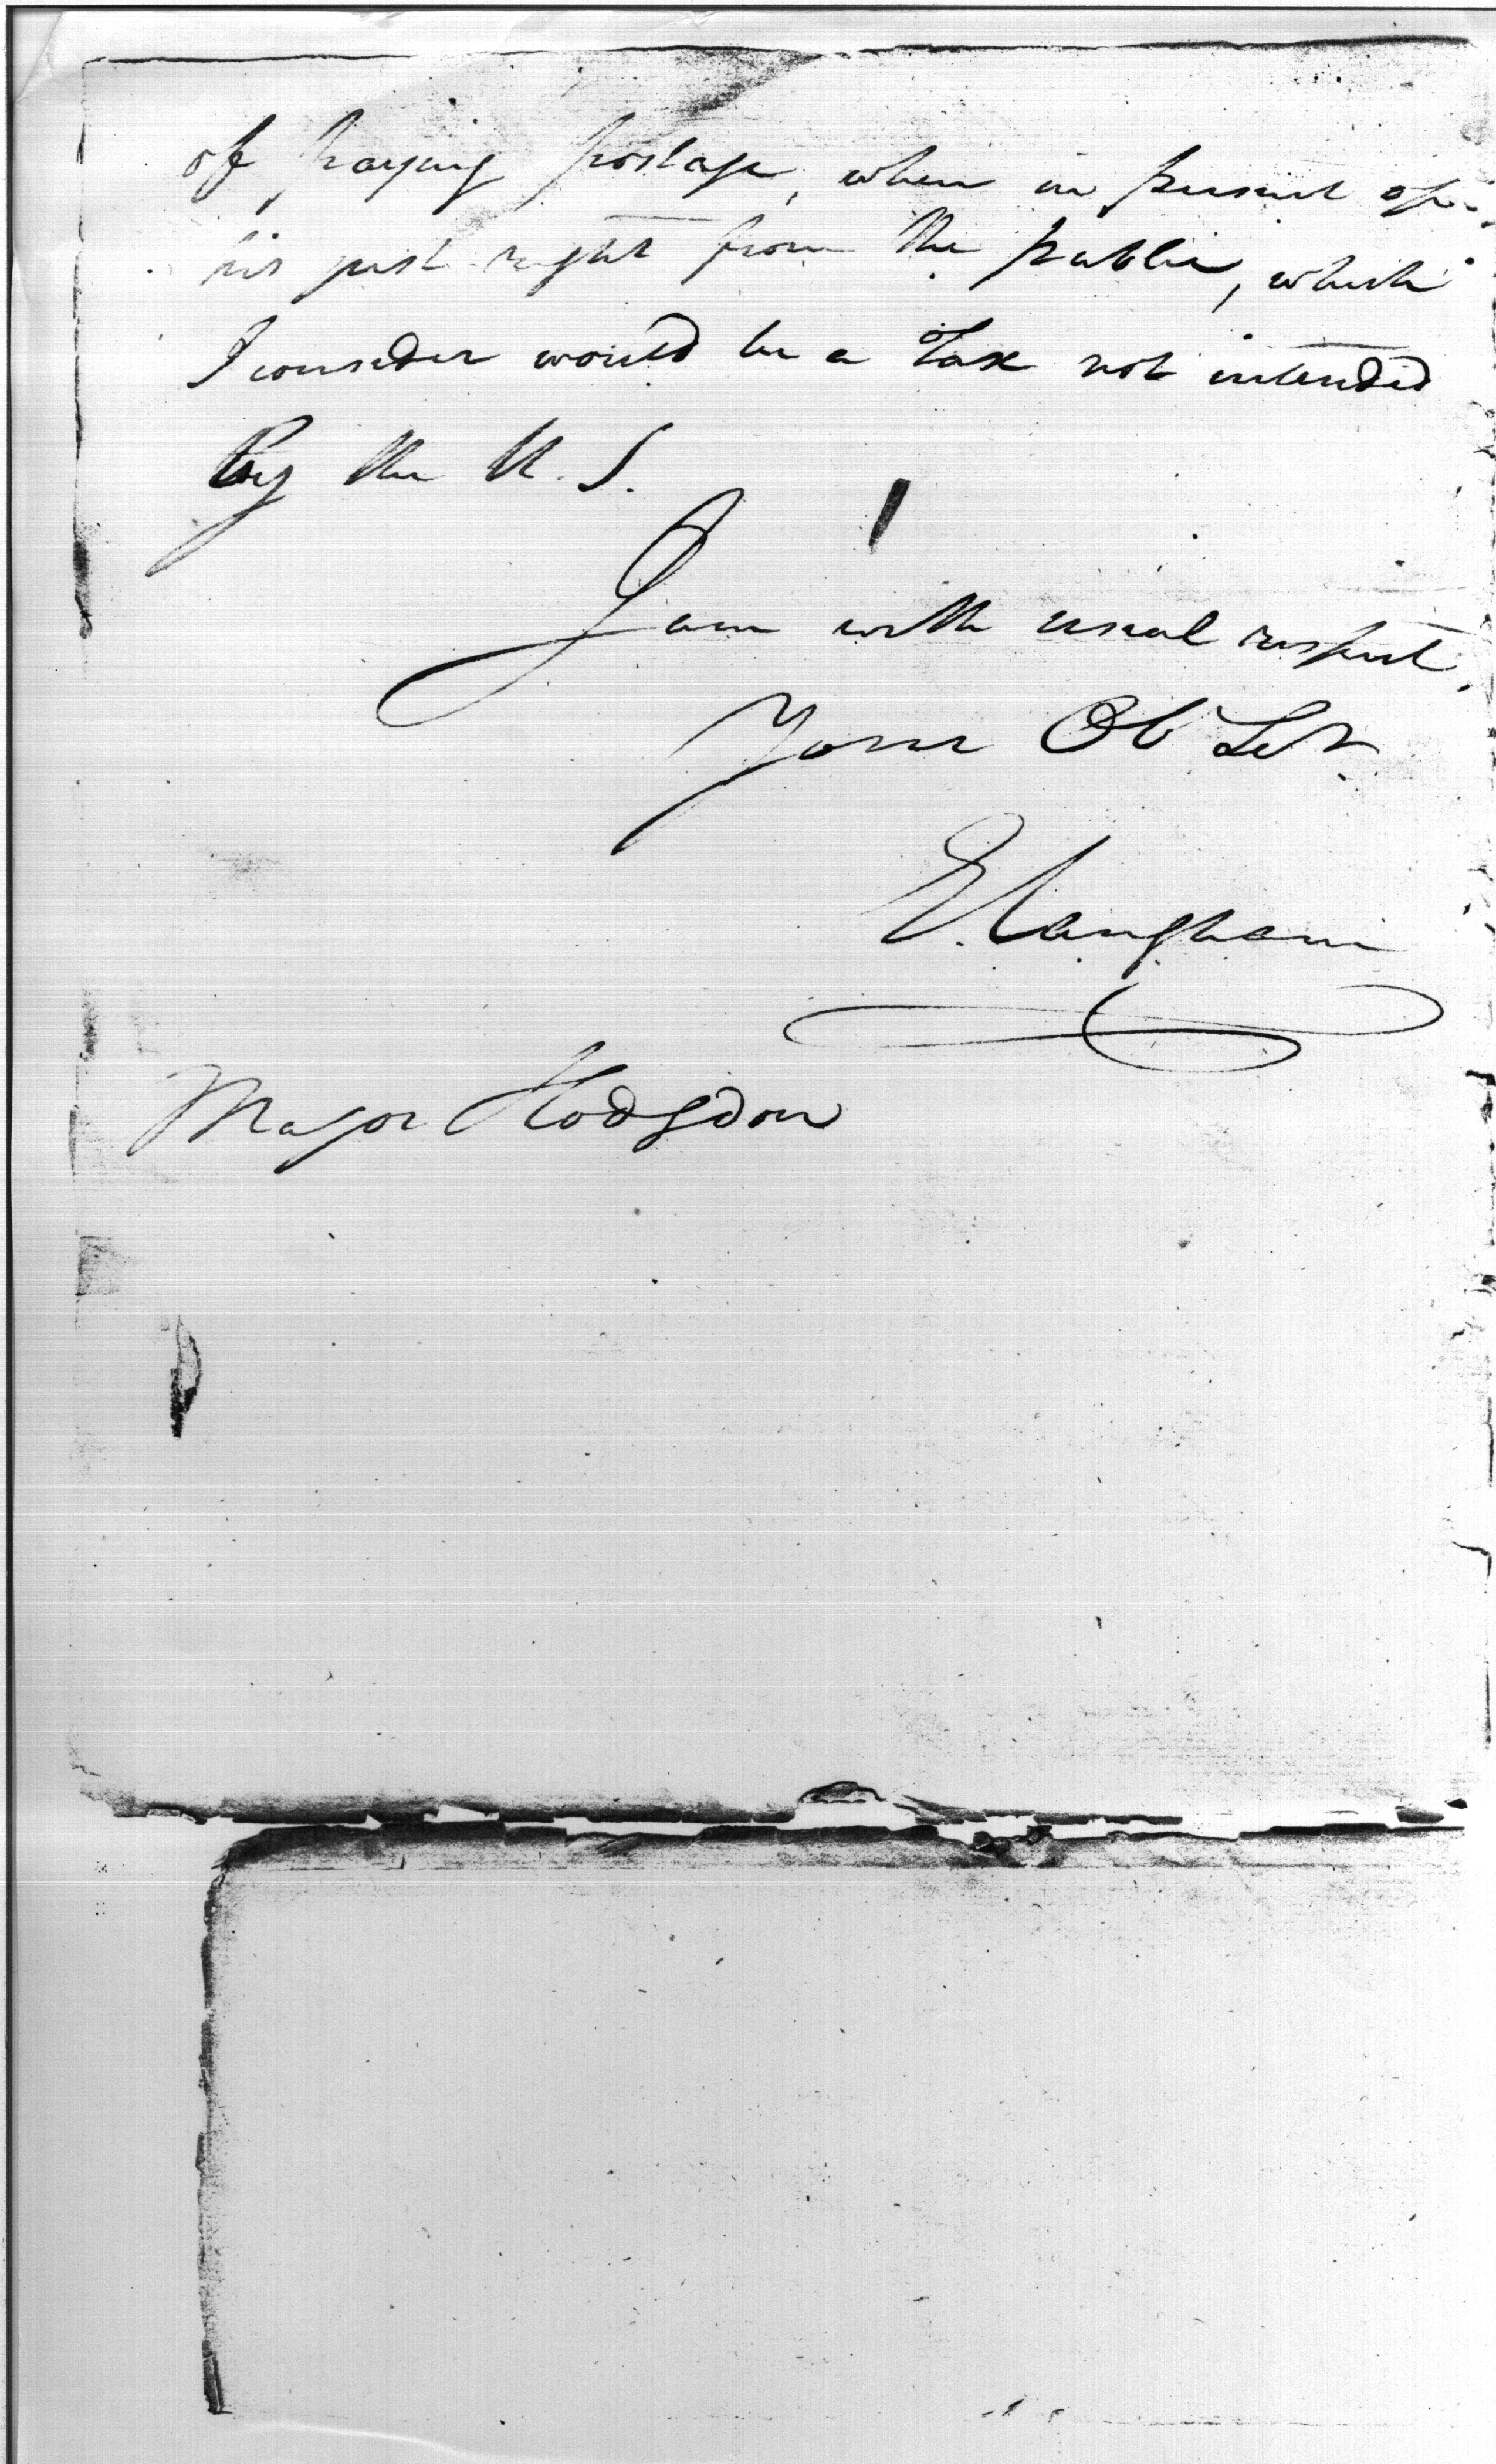 of paying postage, when in pursuit of
his just right from the public, which
I consider would be a tax not intended
By the U. S.
I am with usual respect,
Your Ob Set
E. Langham
Major Hodgdon